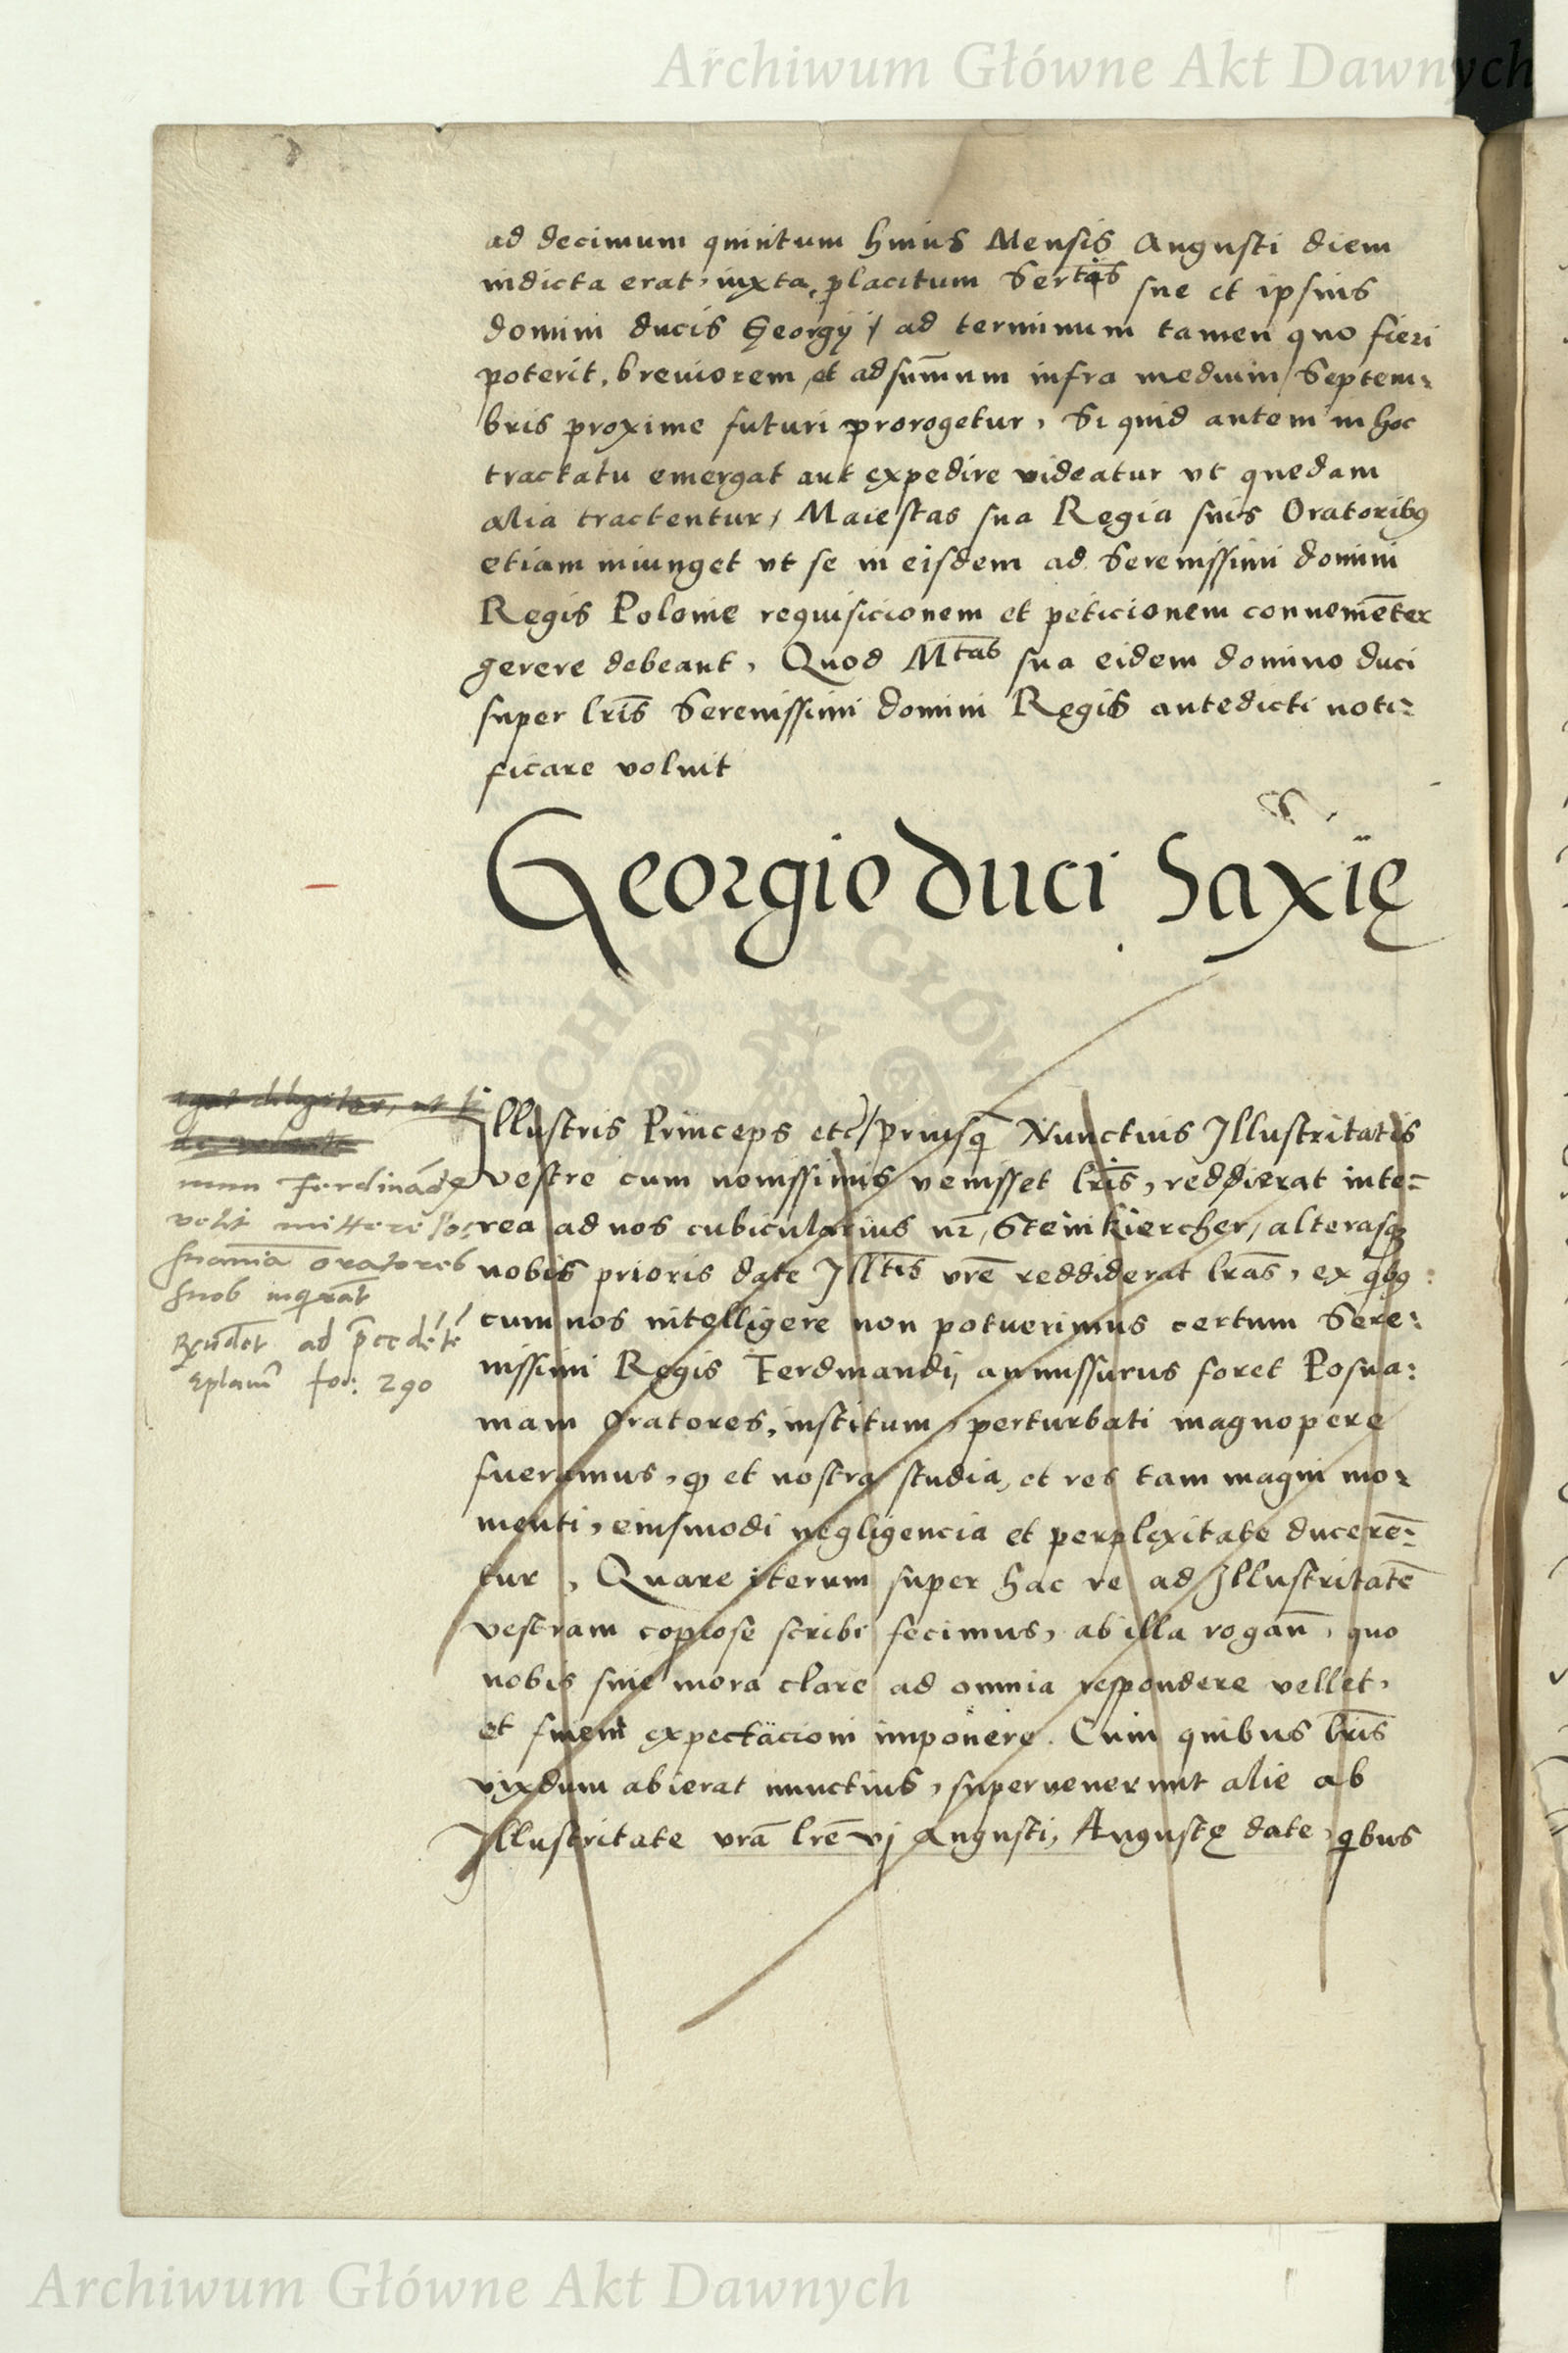 Archiwum Główne Akt Dawnych
ad decimum quintum huius Mensis Augusti diem
indicta erat, iuxta placitum Sertis sue et ipsius
domini ducis Georgÿ / ad terminum tamen quo fieri
poterit, breuiorem, et ad sum̄um infra medium Septem=
bris proxime futuri prorogetur, Si quid autem in hoc
tractatu emergat aut expedire videatur ut quedam
alia tractentur, Maiestas sua Regia suis Oratoribus
etiam iniunget ut se in eisdem ad Serenissimi domini
Regis Polonie requisicionem et peticionem conueniēter
gerere debeant, Quod Mtas sua eidem domino duci
super lr̄is Serenissimi domini Regis antedicti noti=
ficare voluit
Georgio duci Saxię
Illustris Princeps etc / priusq̄ Nunctius Illustritatis
vestre cum nouissimis venisset lr̄is, reddierat inte=
rea ad nos cubicularius nr̄, Steinkiercher, alterasq
nobis prioris date Illtis vrē reddiderat lrās, ex qbus
cum nos intelligere non potuerimus certum Sere:
nissimi Regis Ferdinandi, an missurus foret Posna:
niam Oratores, institum, perturbati magnopere
fueramus, q et nostra studia, et res tam magni mo=
menti, eiusmodi negligencia et perplexitate ducerē=
tur, Quare iterum super hac re ad Illustritatē
vestram copiose scribi fecimus, ab illa rogan̄, quo
nobis sine mora clare ad omnia respondere vellet,
et finem expectacioni imponere. Cum quibus lr̄is
vixdum abierat nunctius, superuenerunt alie ab
Illustritate vrā lrē vj Augusti, Augustę date, qbus
num Ferdinādū
velit mittere Pos
snaniā oratores
suos inqrāt
Rn̄det ad p̄cedētē
Eplam fo: 290
Archiwum Główne Akt Dawnych